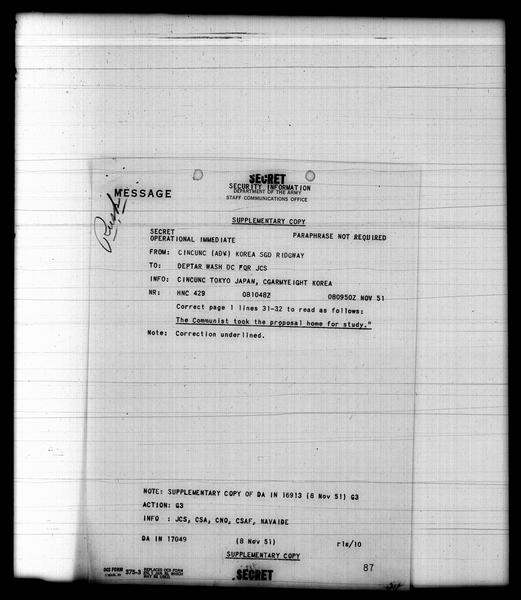 SECRET
SECURITY INFORMATION
DEPARTMENT OF THE ARMY
STAFF COMMUNICATIONS OFFICE
MESSAGE
Rush
SUPPLEMENTARY COPY
SECRET PARAPHRASE NOT REQUIRED
OPERATIONAL IMMEDIATE
FROM: CINCUNC (ADV) KOREA SGD RIDGWAY
TO: DEPTAR WASH DC FOR JCS
INFO: CINCUNC TOKYO JAPAN, CGARMYEIGHT KOREA
NR: HNC 429 081048Z 080950Z NOV 51
Correct page 1 lines 31-32 to read as follows:
The Communist took the proposal home for study."
Note: Correction underlined.
NOTE: SUPPLEMENTARY COPY OF DA IN 16913 (8 Nov 51) G3
ACTION: G3
INFO : JCS, CSA, CNO, CSAF, NAVAIDE
DA IN 17049 (8 Nov 51) rls/10
SUPPLEMENTARY COPY
OCS FORM 375-3 REPLACES OCS FORM
WHICH
MAY BE USED.
SECRET
87